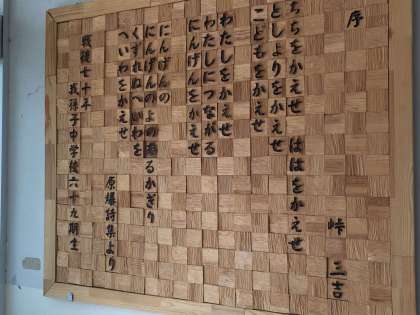 序
峠 三吉
ちちをかえせ ははをかえせ
としよりをかえせ
こどもをかえせ
わたしをかえせ
わたしにつながる
にんげんをかえせ
にんげんの
にんげんのよのあるかぎり
くずれぬへいわを
へいわをかえせ
原爆詩集より
戦後七十年
我孫子中学校六十九期生